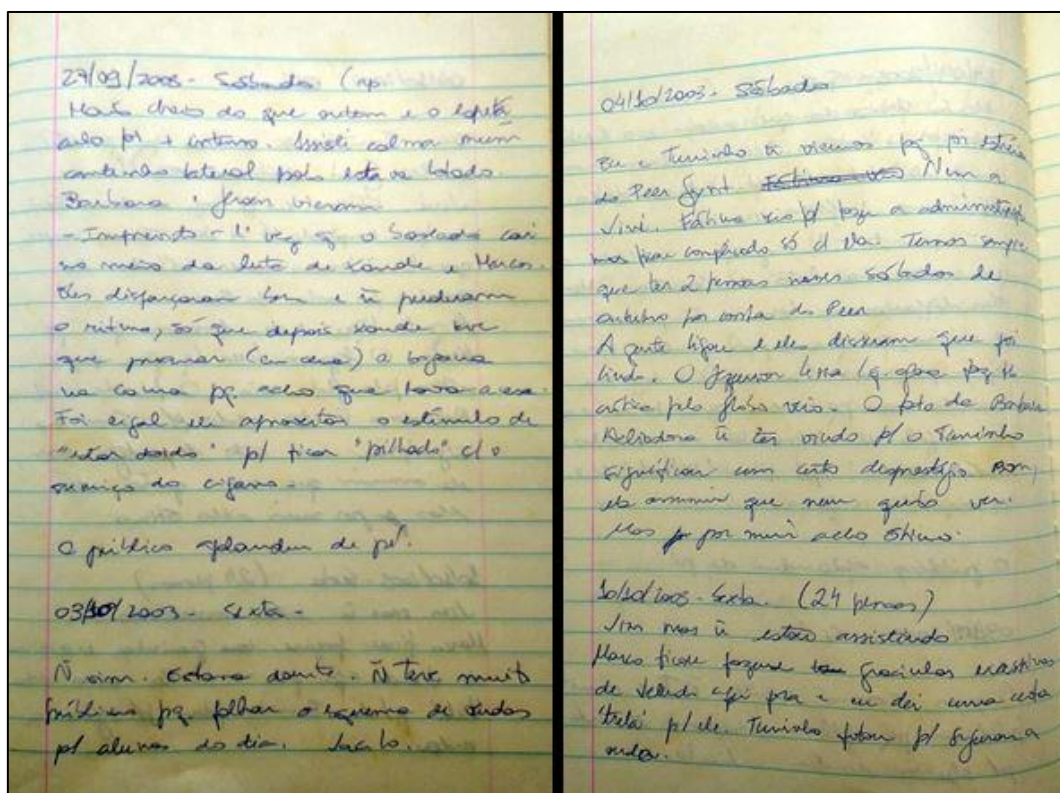 27/09/2003 - Sábado. (
Mais cheio do que ontem e o espetá
culo foi + intenso. Assisti calma num
cantinho lateral pois estava lotado.
Barbara e vieram
- Imprevisto - 1ª vez q o cai
no meio da luta de Xande e Marcos.
Eles disfarçaram bem e ñ perderam
o ritmo, só que depois Xande teve
que procurar (em cena) a
na cama pq acho que
Foi legal ele aproveitou o estímulo de
"estar doido" p/ ficar "pilhado" c/ o
sumiço do cigarro.
O público aplaudiu de pé!
03/10/2003 - Sexta -
Ñ vim. Estava doente. Ñ teve muito
público pq falhou o esquema de
p/ alunos do dia.
04/10/2003 - Sábado
Eu e Tuninho ñ viemos pq foi estréia
do Peer Gynt. Nem a
Vivi. Fátima veio p/ fazer a administração
mas ficou complicado só c/ ela. Temos sempre
que ter 2 pessoas nesses sábados de
outubro por conta do Peer
A gente ligou e eles disseram que foi
lindo. O Lessa (q agora faz
crítica pelo Globo veio. O fato da Barbara
Heliodora ñ ter vindo p/ o Tuninho
significou um certo desprestígio Bom,
ela assumiu que nem quis ver.
Mas por mim acho ótimo.
10/10/2003 - Sexta. (24 pessoas)
Vim mas ñ estou assistindo
Marco ficou fazendo gracinhas
de e eu dei uma certa
"trela" p/ ele. Tuninho p/ segurar a
onda.